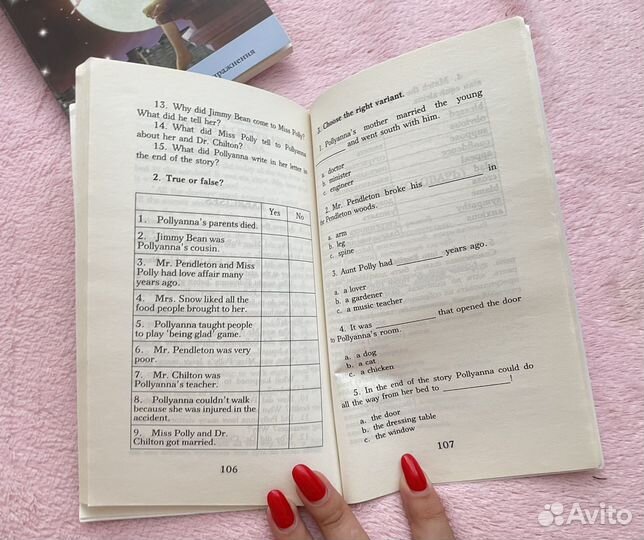 ражнения
13. Why did Jimmy Bean come to Miss Polly?
What did he tell her?
14. What did Miss Polly tell to Pollyanna
about her and Dr. Chilton?
15. What did Pollyanna write in her letter in
the end of the story?
2. True or false?
Yes No
1. Pollyanna's parents died.
2. Jimmy Bean was
Pollyanna's cousin.
3. Mr. Pendleton and Miss
Polly had love affair many
years ago.
4. Mrs. Snow liked all the
food people brought to her.
5. Pollyanna taught people
to play 'being glad' game.
6. Mr. Pendleton was very
poor.
7. Mr. Chilton was
Pollyanna's teacher.
8. Pollyanna couldn't walk
because she was injured in the
accident.
9. Miss Polly and Dr.
Chilton got married.
106
3. Choose the right variant.
1. Pollyanna's mother married the young
________ and went south with him.
a. doctor
b. minister
c. engineer
2. Mr. Pendleton broke his ________ in
the Pendleton woods.
a. arm
b. leg
c. spine
3. Aunt Polly had ________ years ago.
a. a lover
b. a gardener
c. a music teacher
4. It was ________ that opened the door
to Pollyanna's room.
a. a dog
b. a cat
c. a chicken
5. In the end of the story Pollyanna could do
all the way from her bed to ________!
a. the door
b. the dressing table
c. the window
107
Avito